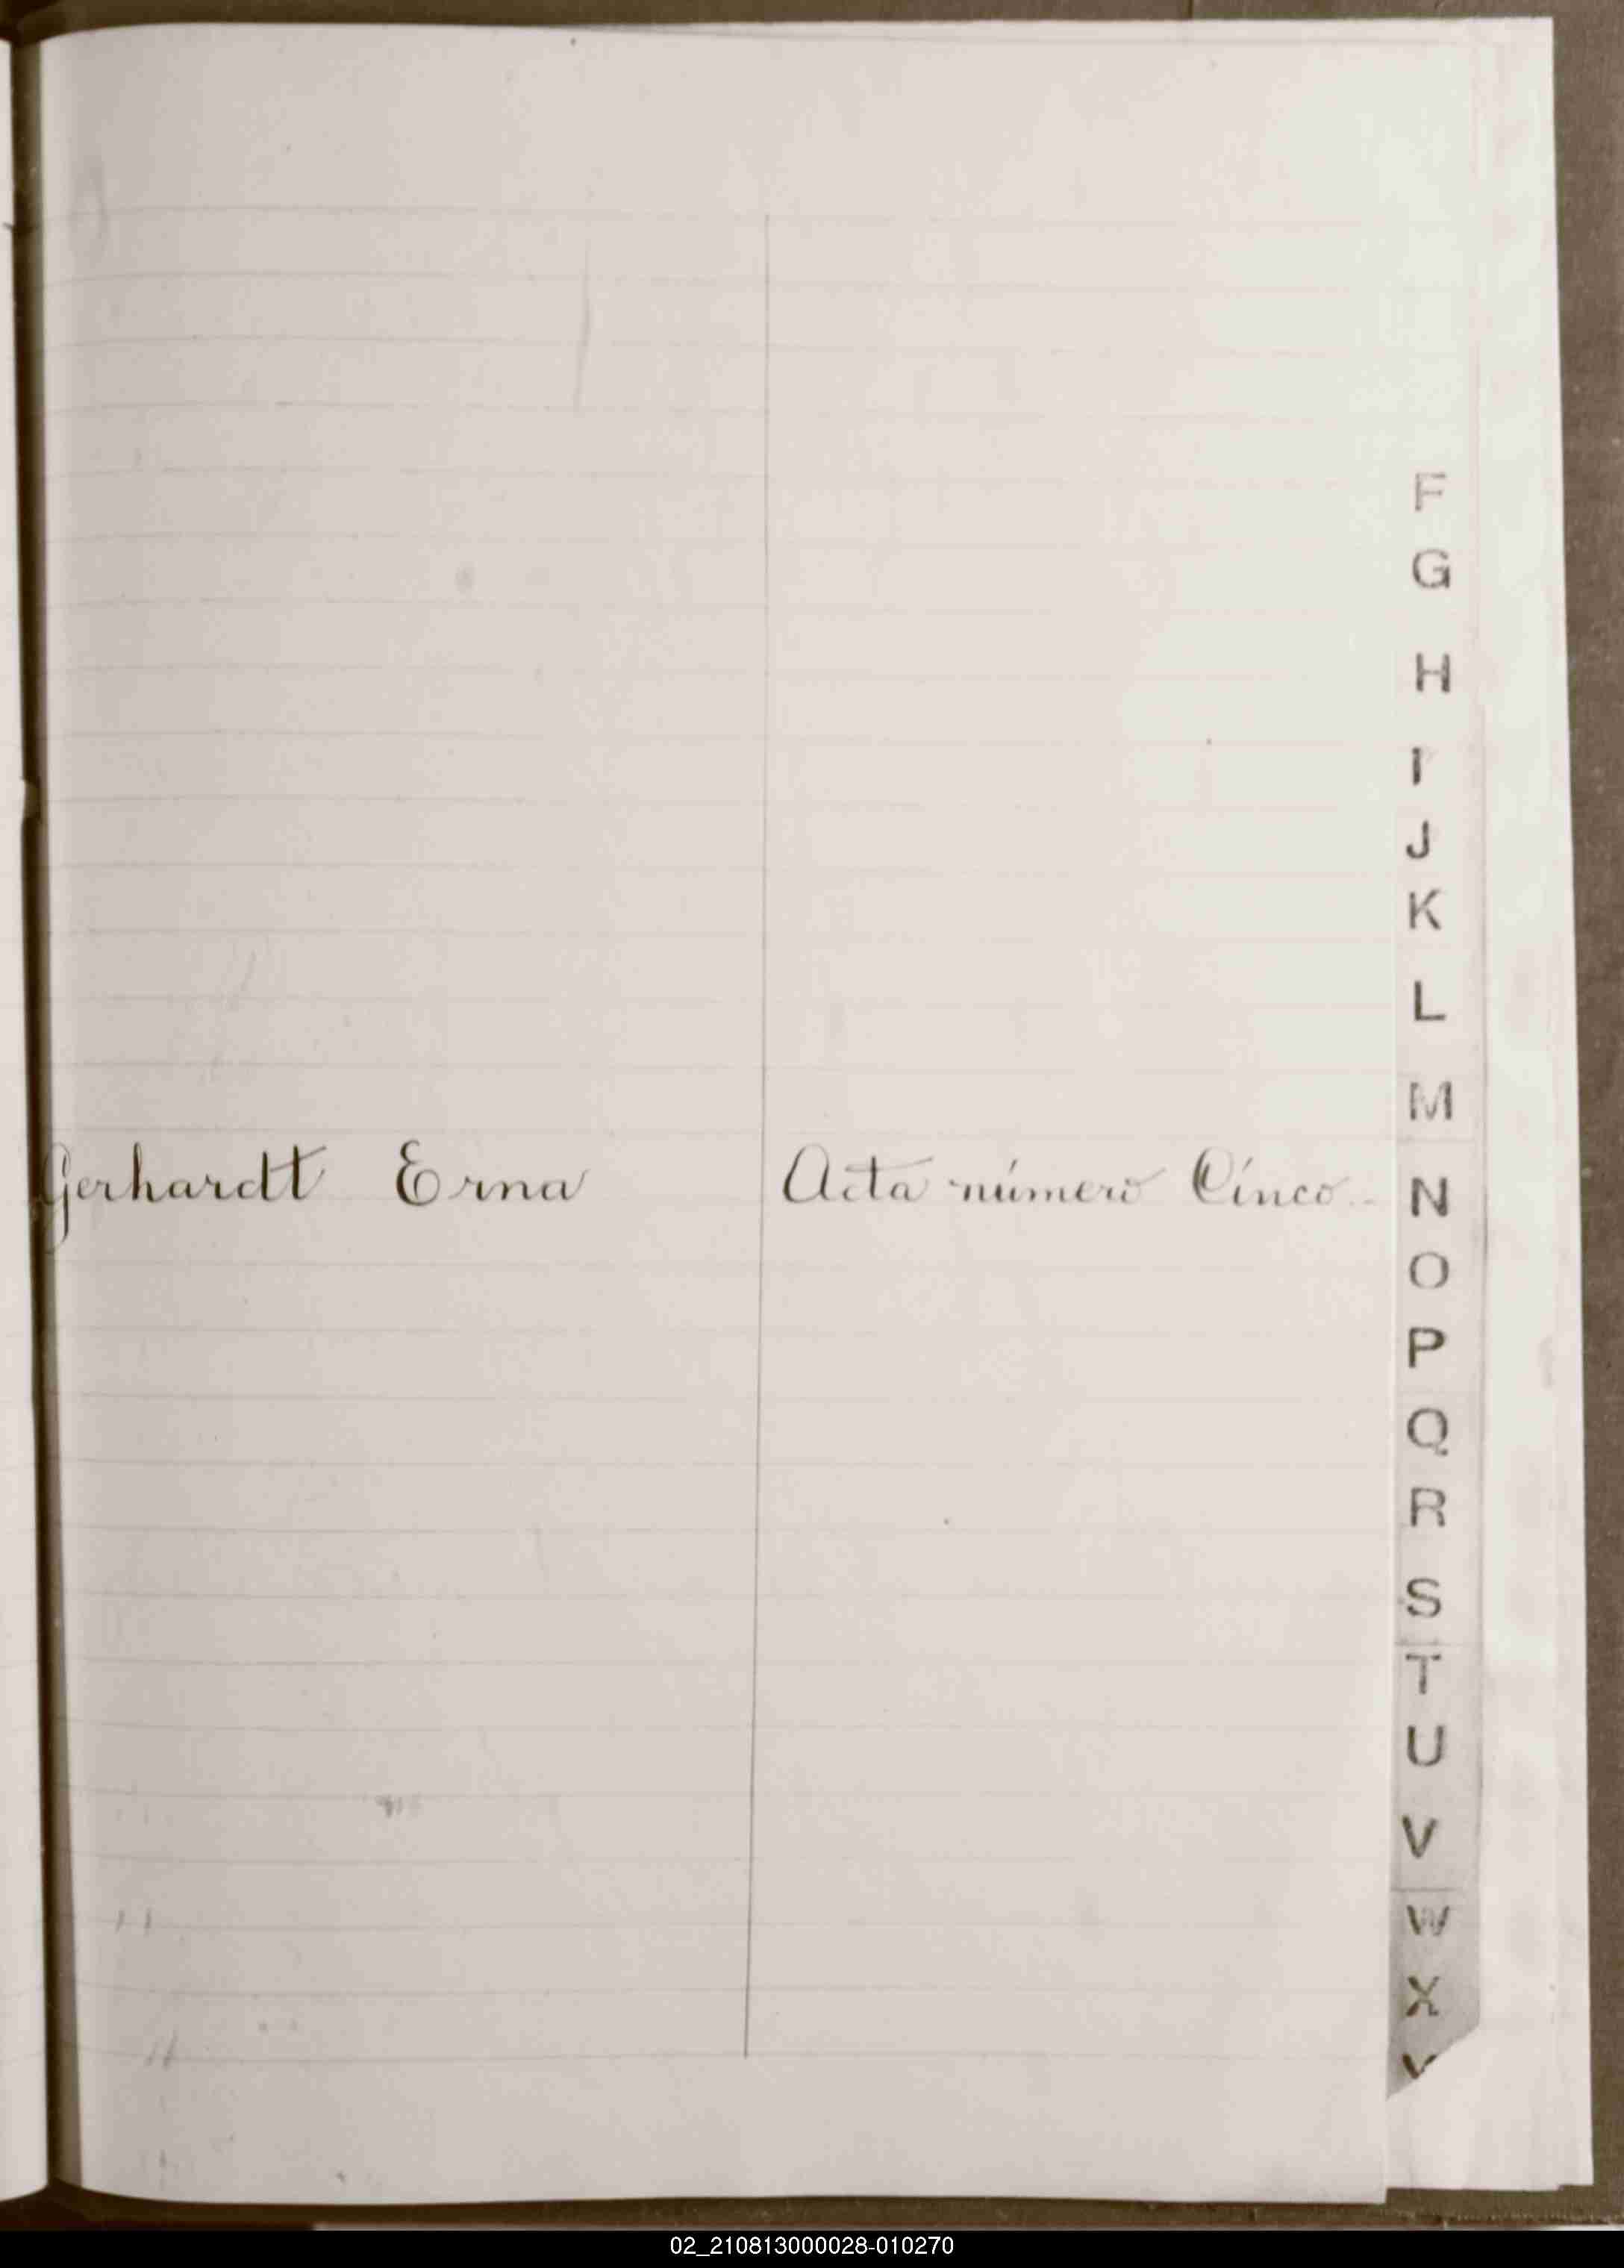 F
G
H
I
J
K
L
M
Gerhardt Erna Acta número Cinco
N
O
P
Q
R
S
T
U
V
W
X
Y
02_210813000028-010270